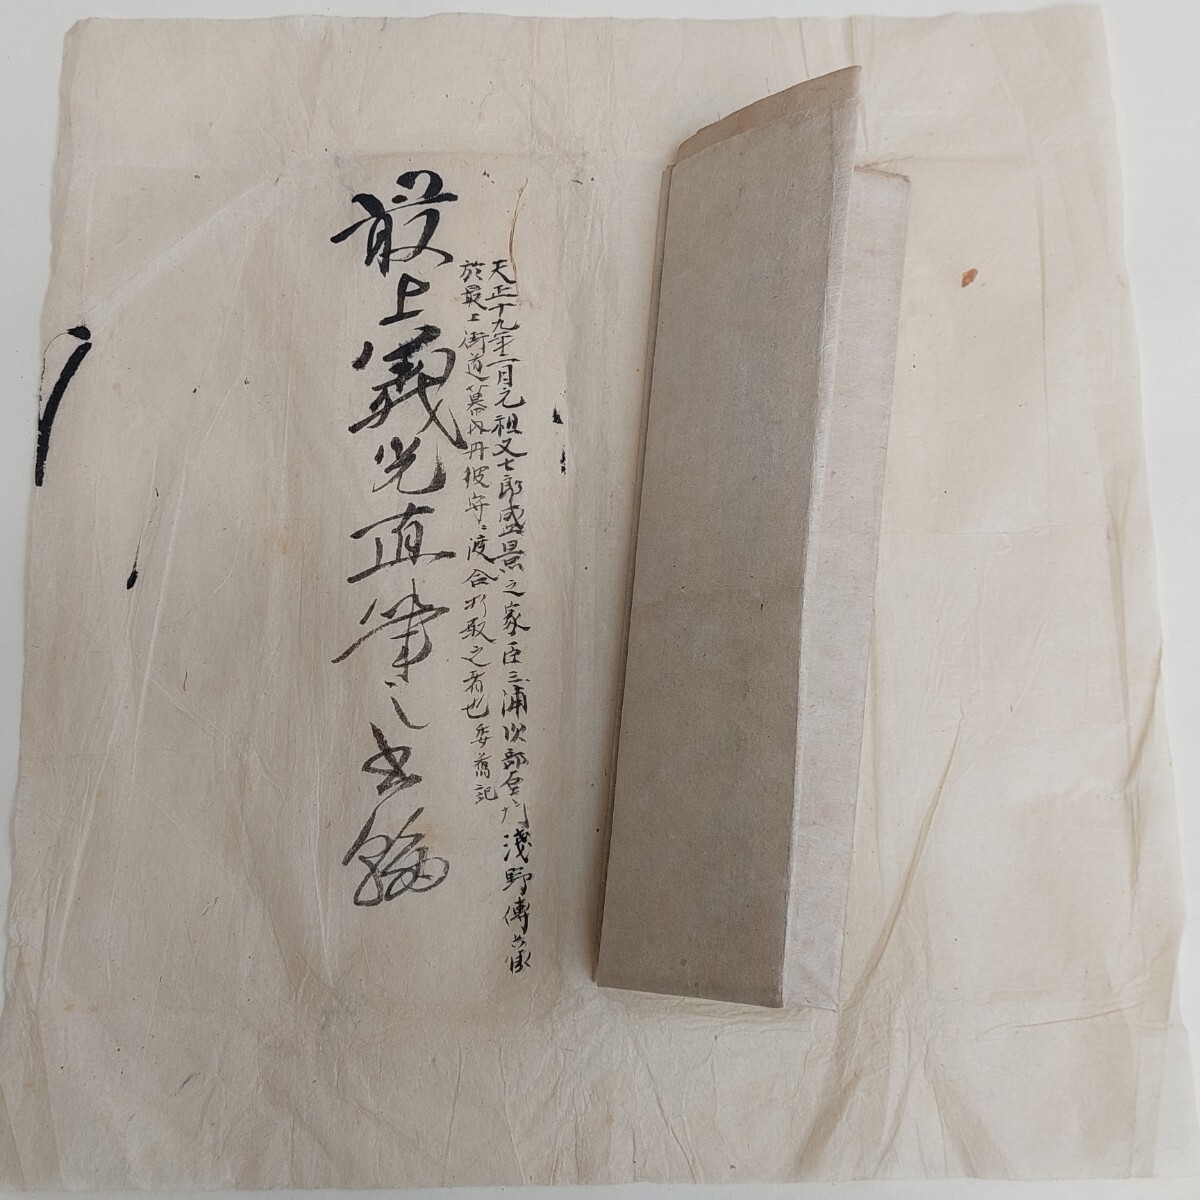 天正十九年二月元祖又七郎盛景之家臣三浦次部左衛門淺野傳蔵
於最上街道幕内丹後守ニ渡合打取之者也委舊記
最上義光直筆之書翰